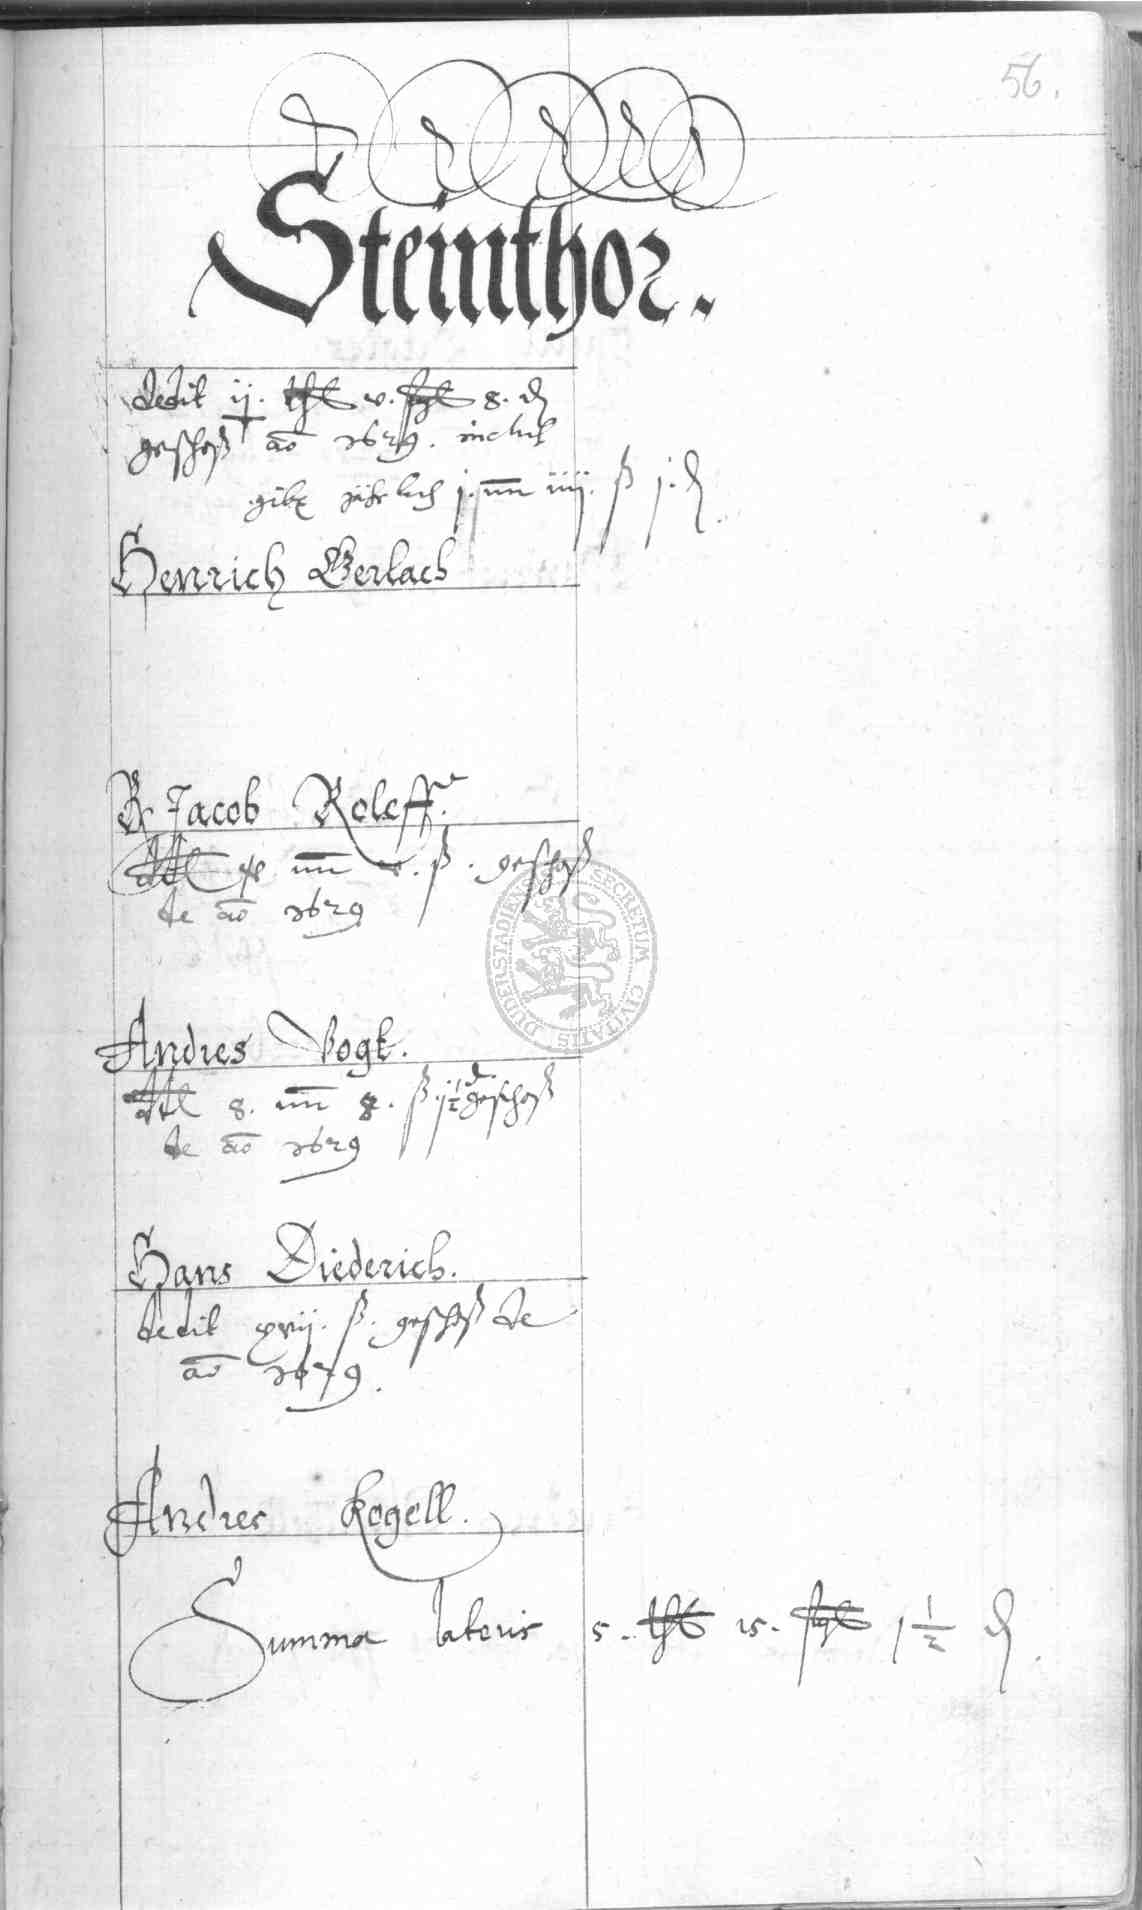 56.
Steinthor.
dedit ij. thl v. ßgl 8. d
geschoß ao 1629. inclus
gibt jährlich j. mr iiij. ß j. d
Henrich Gerlach
Jacob Roleff.
ddt mr ß. geschoß
de ao 1629
Andres Vogt.
ddt 8. mr 8. ß. j 1/2 d. geschoß
de ao 1629
Hans Diederich.
dedit xvij. ß. geschoß de
ao 1629.
Andres Kogell.
Summa lateris 5. thl 15. ßgl 1 1/2 d.
SECRETUM CIVITATIS DUDERSTADIENSIS